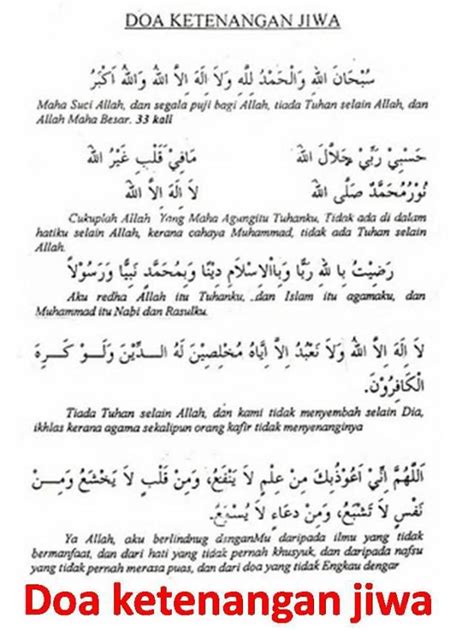 DOA KETENANGAN JIWA
سُبْحَانَ اللهِ وَالْحَمْدُ لِلّهِ وَلاَ اِلَهَ اِلاَّ اللهُ وَاللهُ اَكْبَرُ
Maha Suci Allah, dan segala puji bagi Allah, tiada Tuhan selain Allah, dan
Allah Maha Besar. 33 kali
حَسْبِيْ رَبِّيْ جَلاَلَ الله مَافِيْ قَلْبِ غَيْرُ الله
نُوْرُمُحَمَّدْ صَلَّى الله لاَ اِلَهَ اِلاَّ الله
Cukuplah Allah Yang Maha Agungitu Tuhanku, Tidak ada di dalam
hatiku selain Allah, kerana cahaya Muhammad, tidak ada Tuhan selain
Allah.
رَضِيْتُ بِا للهِ رَبًّا وَبِاْلاِسْلاَمِ دِيْنًا وَبِمُحَمَّدٍ نَبِيًّا وَرَسُوْلاً
Aku redha Allah itu Tuhanku, dan Islam itu agamaku, dan
Muhammad itu Nabi dan Rasulku.
لاَ اِلَهَ اِلاَّ اللهُ وَلاَ نَعْبُدُ اِلاَّ اِيَّاهُ مُخْلِصِيْنَ لَهُ الــدِّيْنَ وَلَــوْ كَــرِهَ
الْكَافِرُوْنَ.
Tiada Tuhan selain Allah, dan kami tidak menyembah selain Dia,
ikhlas kerana agama sekalipun orang kafir tidak menyenanginya
اَللَّهُمَّ اِنِّيْ اَعُوْذُبِكَ مِنْ عِلْمٍ لاَ يَنْفَعُ، وَمِنْ قَلْبٍ لاَ يَخْشَعُ وَمِــنْ
نَفْسٍ لاَ تَشْبَعُ، وَمِنْ دُعَاءٍ لاَ يُسْتَمَعُ.
Ya Allah, aku berlindnug dinganMu daripada ilmu yang tidak
bermanfaat, dan dari hati yang tidak pernah khusyuk, dan daripada nafsu
yang tidak pernah merasa puas, dan dari doa yang tidak Engkau dengar
Doa ketenangan jiwa